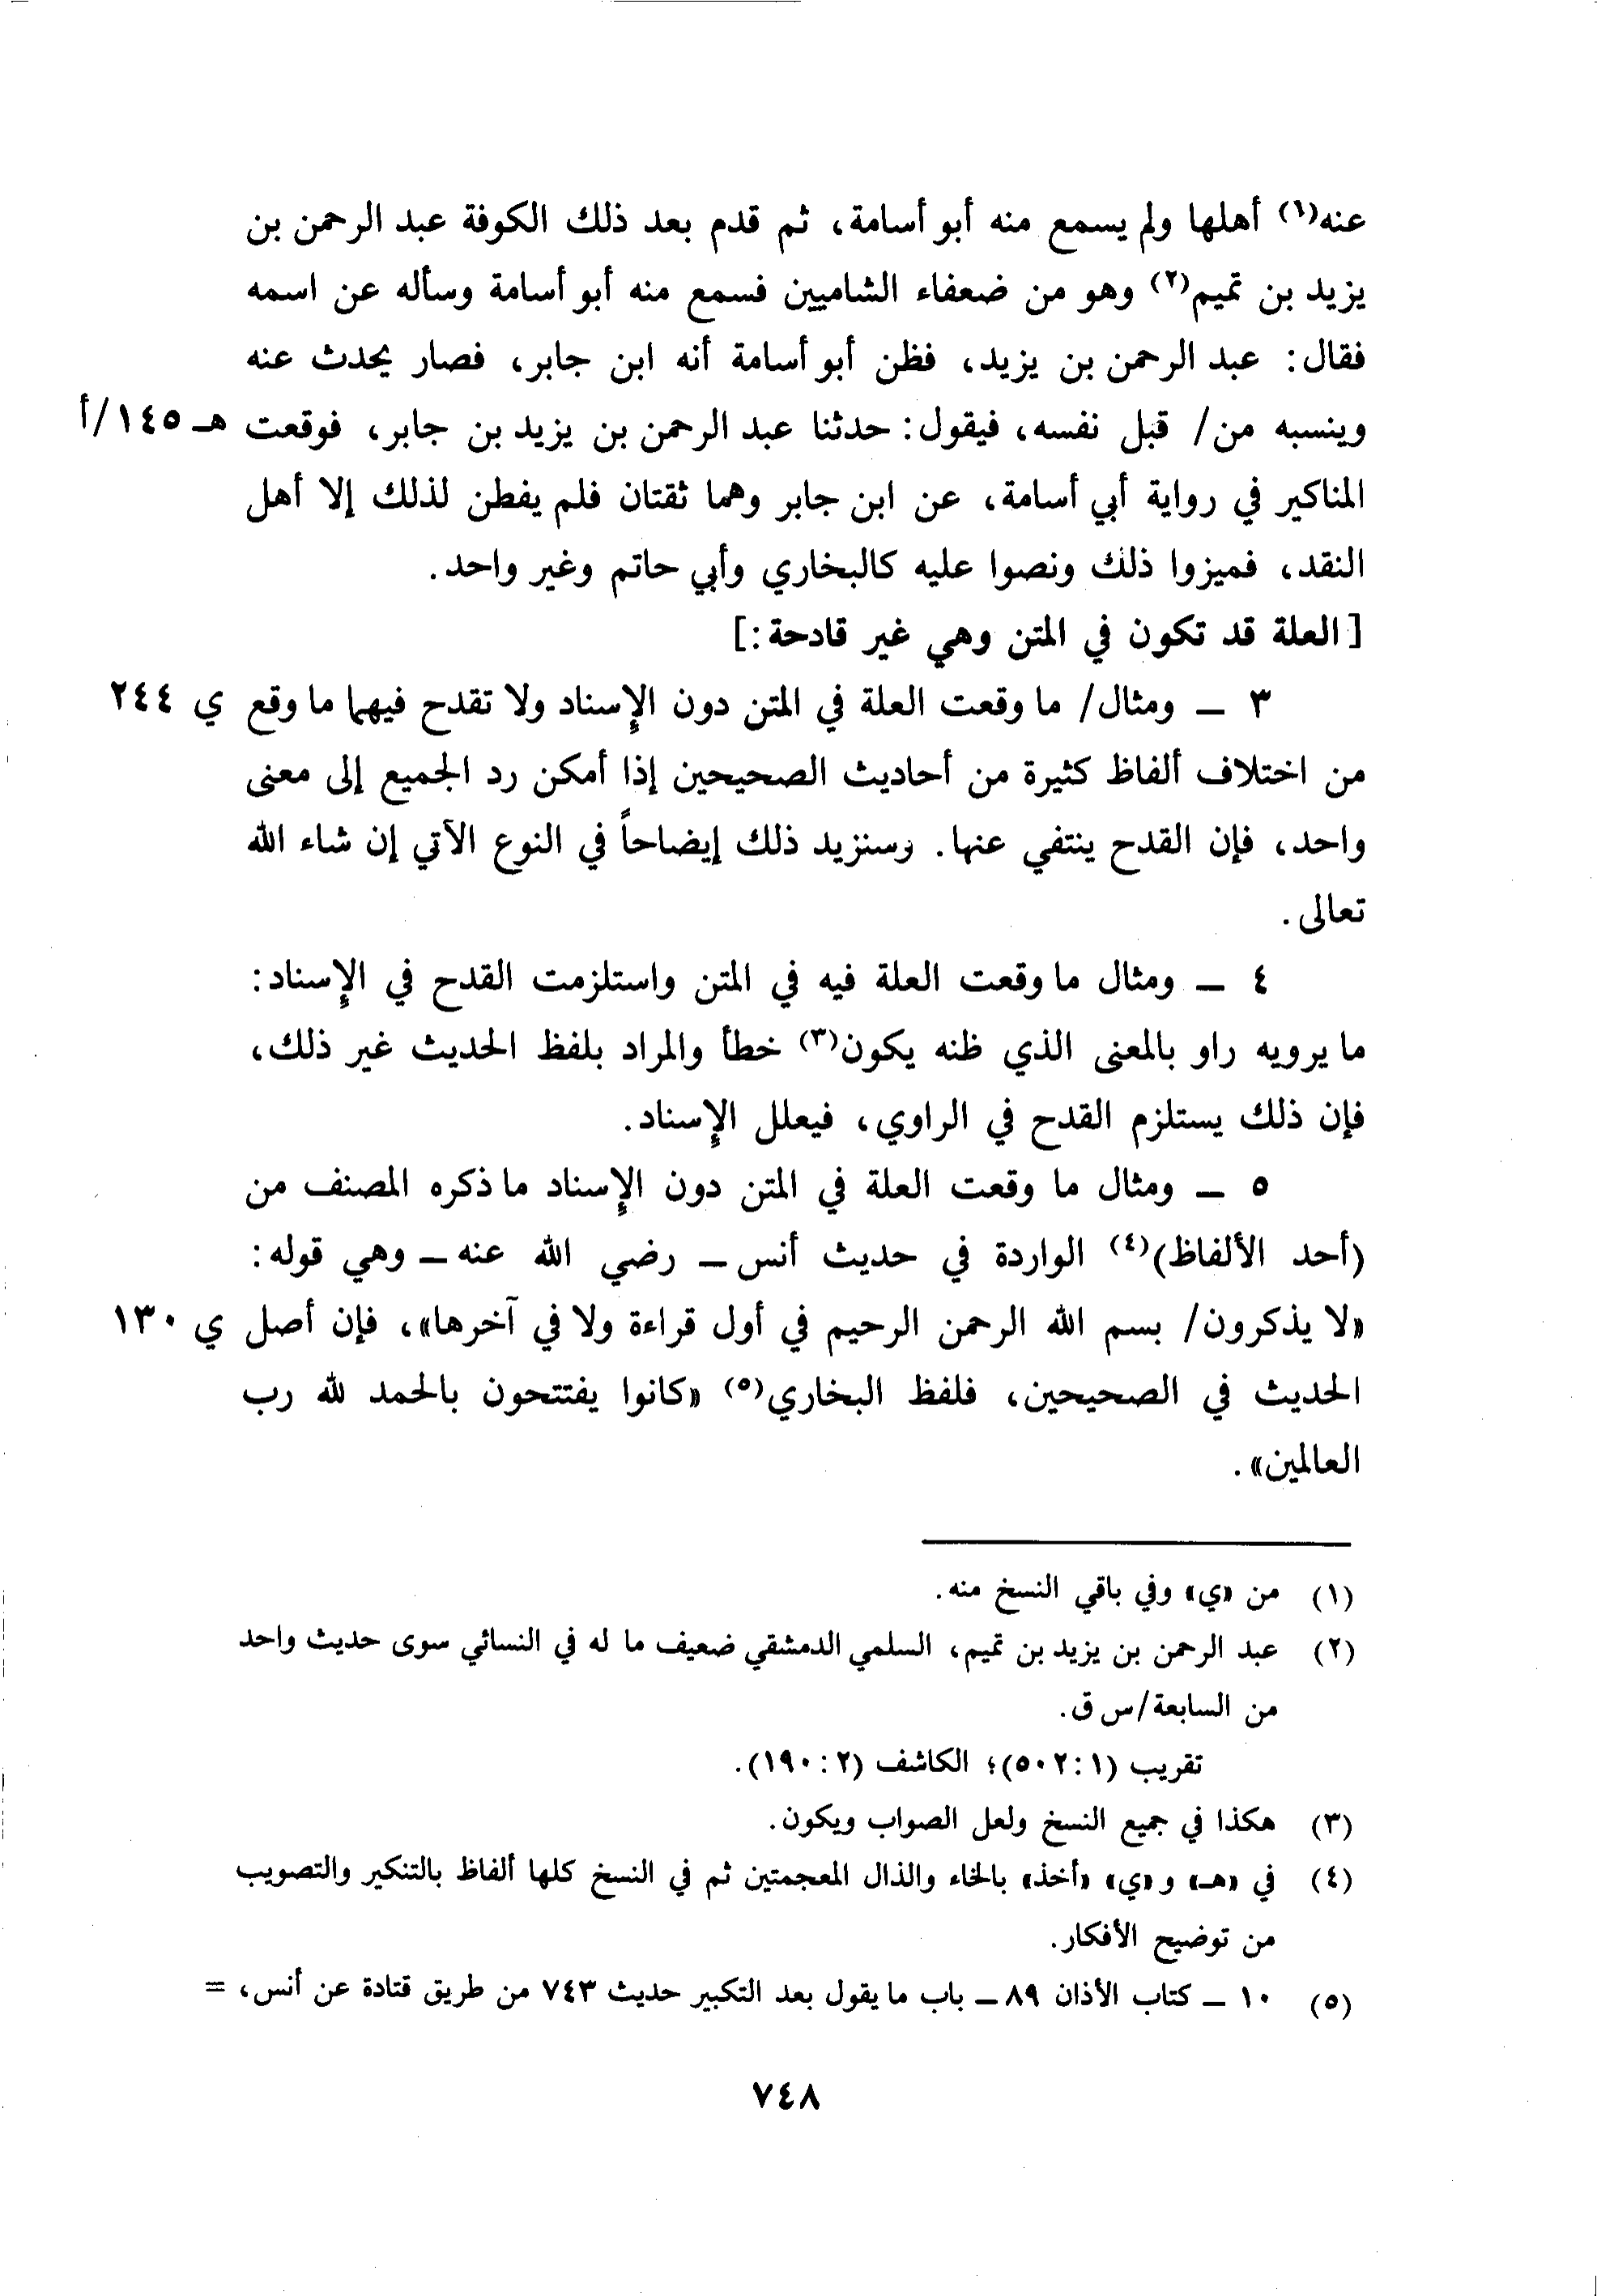 عنه(١) أهلها ولم يسمع منه أبو أسامة، ثم قدم بعد ذلك الكوفة عبد الرحمن بن
يزيد بن تميم(٢) وهو من ضعفاء الشاميين فسمع منه أبو أسامة وسأله عن اسمه
فقال: عبد الرحمن بن يزيد، فظن أبو أسامة أنه ابن جابر، فصار يحدث عنه
وينسبه من/ قبل نفسه، فيقول: حدثنا عبد الرحمن بن يزيد بن جابر، فوقعت هـ ١٤٥/أ
المناكير في رواية أبي أسامة، عن ابن جابر وهما ثقتان فلم يفطن لذلك إلا أهل
النقد، فميزوا ذلك ونصوا عليه كالبخاري وأبي حاتم وغير واحد.
[العلة قد تكون في المتن وهي غير قادحة:]
٣ — ومثال/ ما وقعت العلة في المتن دون الإسناد ولا تقدح فيهما ما وقع ي ٢٤٤
من اختلاف ألفاظ كثيرة من أحاديث الصحيحين إذا أمكن رد الجميع إلى معنى
واحد، فإن القدح ينتفي عنها. وسنزيد ذلك إيضاحاً في النوع الآتي إن شاء الله
تعالى.
٤ — ومثال ما وقعت العلة فيه في المتن واستلزمت القدح في الإسناد:
ما يرويه راو بالمعنى الذي ظنه يكون(٣) خطأ والمراد بلفظ الحديث غير ذلك،
فإن ذلك يستلزم القدح في الراوي، فيعلل الإسناد.
٥ — ومثال ما وقعت العلة في المتن دون الإسناد ما ذكره المصنف من
(أحد الألفاظ)(٤) الواردة في حديث أنس — رضي الله عنه — وهي قوله:
«لا يذكرون/ بسم الله الرحمن الرحيم في أول قراءة ولا في آخرها»، فإن أصل ي ١٣٠
الحديث في الصحيحين، فلفظ البخاري(٥) «كانوا يفتتحون بالحمد لله رب
العالمين».
(١) من «ي» وفي باقي النسخ منه.
(٢) عبد الرحمن بن يزيد بن تميم، السلمي الدمشقي ضعيف ما له في النسائي سوى حديث واحد
من السابعة/س ق.
تقريب (١:٥٠٢)؛ الكاشف (٢:١٩٠).
(٣) هكذا في جميع النسخ ولعل الصواب ويكون.
(٤) في «هـ» و «ي» «أخذ» بالخاء والذال المعجمتين ثم في النسخ كلها ألفاظ بالتنكير والتصويب
من توضيح الأفكار.
(٥) ١٠ — كتاب الأذان ٨٩ — باب ما يقول بعد التكبير حديث ٧٤٣ من طريق قتادة عن أنس، =
٧٤٨